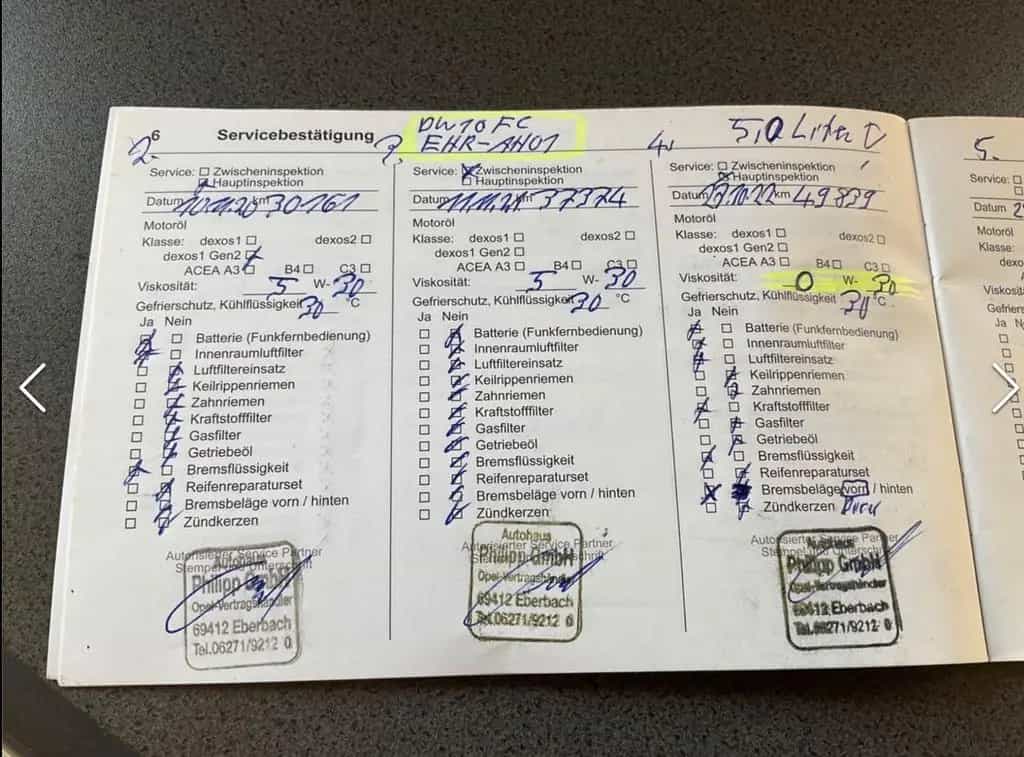 6 Servicebestätigung
DW10FC
EHR-AH01
5,0 Liter
2.
Service: Zwischeninspektion
Hauptinspektion
Datum 30161
Motoröl
Klasse: dexos1 dexos2
dexos1 Gen2
ACEA A3 B4 C3
Viskosität: 5 W- 30
Gefrierschutz, Kühlflüssigkeit 30 °C
Ja Nein
Batterie (Funkfernbedienung)
Innenraumluftfilter
Luftfiltereinsatz
Keilrippenriemen
Zahnriemen
Kraftstofffilter
Gasfilter
Getriebeöl
Bremsflüssigkeit
Reifenreparaturset
Bremsbeläge vorn / hinten
Zündkerzen
Autorisierter Service Partner
Stempel und Unterschrift
Autohaus
Philipp GmbH
Opel-Vertragshändler
69412 Eberbach
Tel.06271/9212 0
3.
Service: Zwischeninspektion
Hauptinspektion
Datum 11.11.21 km 37374
Motoröl
Klasse: dexos1 dexos2
dexos1 Gen2
ACEA A3 B4 C3
Viskosität: 5 W- 30
Gefrierschutz, Kühlflüssigkeit 30 °C
Ja Nein
Batterie (Funkfernbedienung)
Innenraumluftfilter
Luftfiltereinsatz
Keilrippenriemen
Zahnriemen
Kraftstofffilter
Gasfilter
Getriebeöl
Bremsflüssigkeit
Reifenreparaturset
Bremsbeläge vorn / hinten
Zündkerzen
Autorisierter Service Partner
Autohaus
Philipp GmbH
Opel-Vertragshändler
69412 Eberbach
Tel.06271/9212 0
4.
Service: Zwischeninspektion
Hauptinspektion
Datum 10.22 km 49839
Motoröl
Klasse: dexos1 dexos2
dexos1 Gen2
ACEA A3 B4 C3
Viskosität: 0 W- 30
Gefrierschutz, Kühlflüssigkeit 30 °C
Ja Nein
Batterie (Funkfernbedienung)
Innenraumluftfilter
Luftfiltereinsatz
Keilrippenriemen
Zahnriemen
Kraftstofffilter
Gasfilter
Getriebeöl
Bremsflüssigkeit
Reifenreparaturset
Bremsbeläge vorn / hinten
Zündkerzen
Autorisierter Service Partner
Stempel und Unterschrift
Autohaus
Philipp GmbH
Opel-Vertragshändler
69412 Eberbach
Tel.06271/9212 0
5.
Service:
Datum
Motoröl
Klasse: